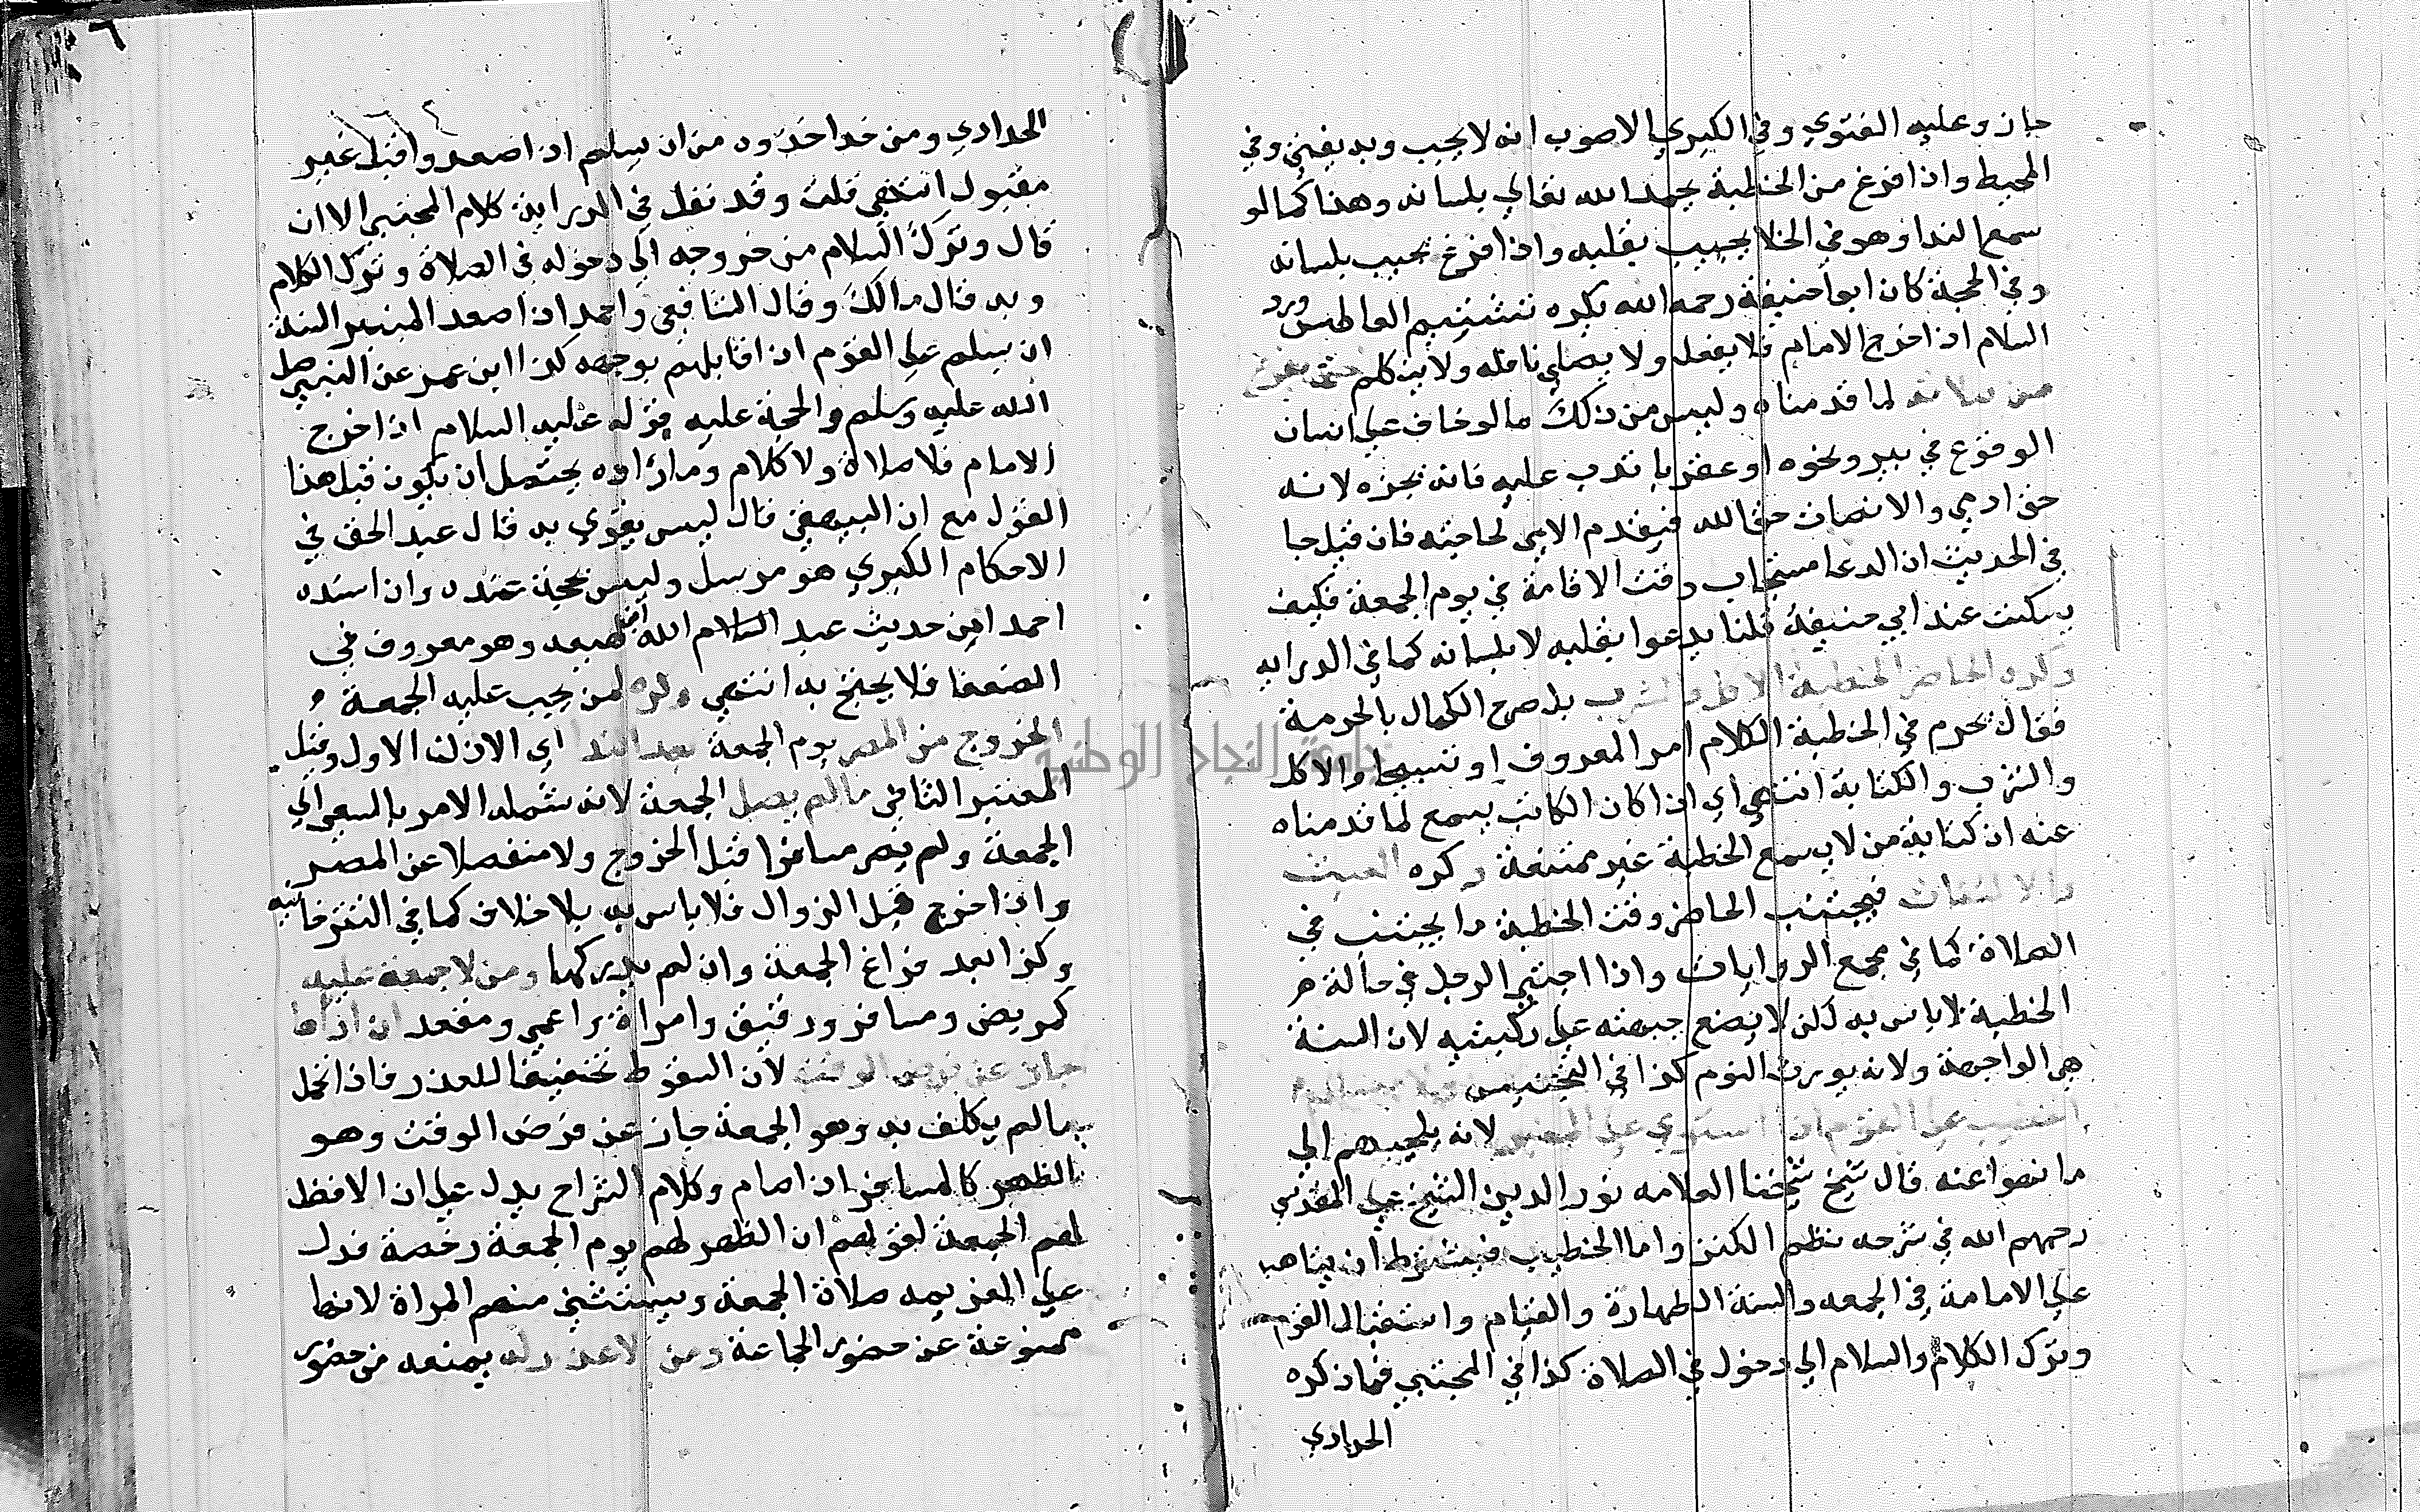 جاز وعليه الفتوي وفي الكبري الاصوب انه لا يجيب وبه يفتي وفي
المحيط واذا فرغ من الخطبة بحمد الله تعالي بلسانه وهذا كما لو
سمع الندا وهو في الخلا يجيب بقلبه واذا فرغ يجيب بلسانه
وفي الحجة كان ابو حنيفة رحمه الله يكره تشميم العاطس ورد
السلام اذا خرج الامام فلا يفعله ولا يصلي نافله ولا يتكلم حتى يفرغ
من صلاته لما قدمناه وليس من ذلك ما لو خاف علي انسان
الوقوع في بير ونحوه او عقربا تدب عليه فانه يحذره لانه
حق ادمي والانصات حق الله فيقدم الادمي لحاجته فان قيل جا
في الحديث ان الدعا مستجاب وقت الاقامة في يوم الجمعة فكيف
يسكت عند ابي حنيفة قلنا يدعوا بقلبه لا بلسانه كما في الدرايه
وكره لحاضر الخطبة الاكل والشرب بل صرح الكمال بالحرمة
فقال يحرم في الخطبة الكلام امر المعروف او تسبيحا والاكل
والشرب والكتابة انتهي اي اذا كان الكاتب يسمع لما قدمناه
عنه ان كتابة من لا يسمع الخطبة غير ممتنعة وكره العبث
والالتفات فيجتنب الحاضر وقت الخطبة ما يجتنب في
الصلاة كما في مجمع الروايات واذا احتبي الرجل في حالة
الخطبة لا باس به لكن لا يضع جبهته علي ركبتيه لان السنة
هي المواجهة ولانه يورث النوم كذا في التجنيس ولا يسلم
الخطيب علي القوم اذا استوي علي المنبر لانه يلجيهم الي
ما نهوا عنه قال شيخ شيخنا العلامه نور الدين الشيخ علي المقدسي
رحمهم الله في شرحه نظم الكنز واما الخطيب فيشترط ان يتاهب
علي الامامة في الجمعه والسنة الطهارة والقيام واستقبال القوم
وترك الكلام والسلام الي دخول في الصلاة كذا في المجتبي فما ذكره
الحدادي
الحدادي ومن حذا حذوه من ان يسلم اذا صعد واقبل غير
مقبول انتهي قلت وقد نقل في الدراية كلام المجتبي الا ان
قال وترك السلام من خروجه الي دخوله في الصلاة وترك الكلام
وبه قال مالك وقال الشافعي واحمد اذا صعد المنبر السنة
ان يسلم علي القوم اذا قابلهم بوجهه كذا ابن عمر عن النبي صل
الله عليه وسلم والحجة عليه قوله عليه السلام اذا خرج
الامام فلا صلاة ولا كلام وما رواه يحتمل ان يكون قبل هذا
القول مع ان البيهقي قال ليس بقوي به قال عبد الحق في
الاحكام الكبري هو مرسل وليس بحجة عنده وان اسنده
احمد من حديث عبد السلام الله لهيعه وهو معروف في
الضعفا فلا يحتج به انتهي وكره لمن يجب عليه الجمعة
الخروج من المصر يوم الجمعة بعد الندا اي الاذان الاول وقيل
المعتبر الثاني ما لم يصل الجمعة لانه شمله الامر بالسعي الي
الجمعة ولم يصر مسافرا قبل الخروج ولا منفصلا عن المصر
واذا خرج قبل الزوال فلا باس به بلا خلاف كما في التترخانيه
وكذا بعد فراغ الجمعة وان لم يدركها ومن لا جمعة عليه
كمريض ومسافر ورقيق وامراة واعمي ومقعد ان اداها
جاز عن فرض الوقت لان السقوط تخفيفا للعذر فاذا تحمل
بما لم يكلف به وهو الجمعة جاز عن فرض الوقت وهو
الظهر كالمسافر اذا صام وكلام الشراح يدل علي ان الافضل
لهم الجمعة لقولهم ان الظهر لهم يوم الجمعة رخصة فدل
علي العزيمه صلاة الجمعة ويستثني منهم المراة لانها
ممنوعة عن حضور الجماعة ومن لا عذر له يمنعه من حضور
جامعة النجاح الوطنية